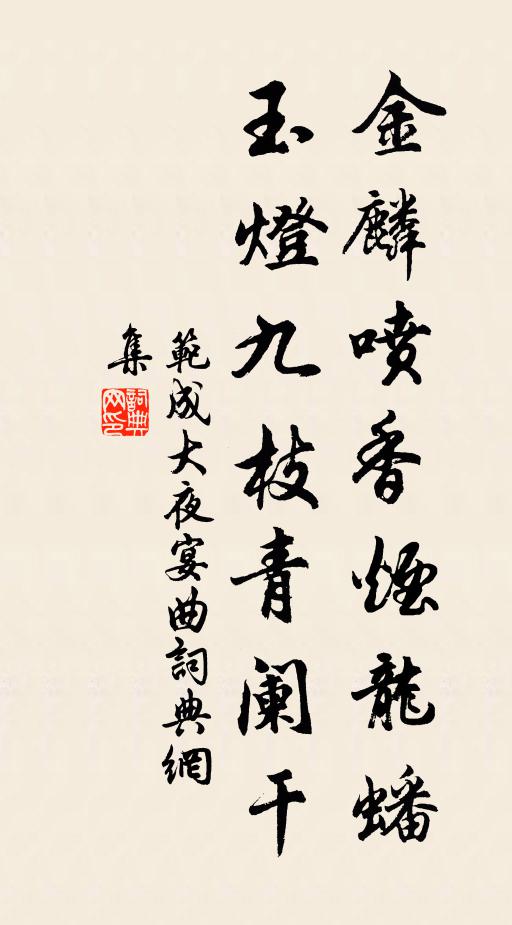 金麟喷香煙龍蟠
玉燈九枝青闌干
範成大夜宴曲詞典網
集
詞典
网印